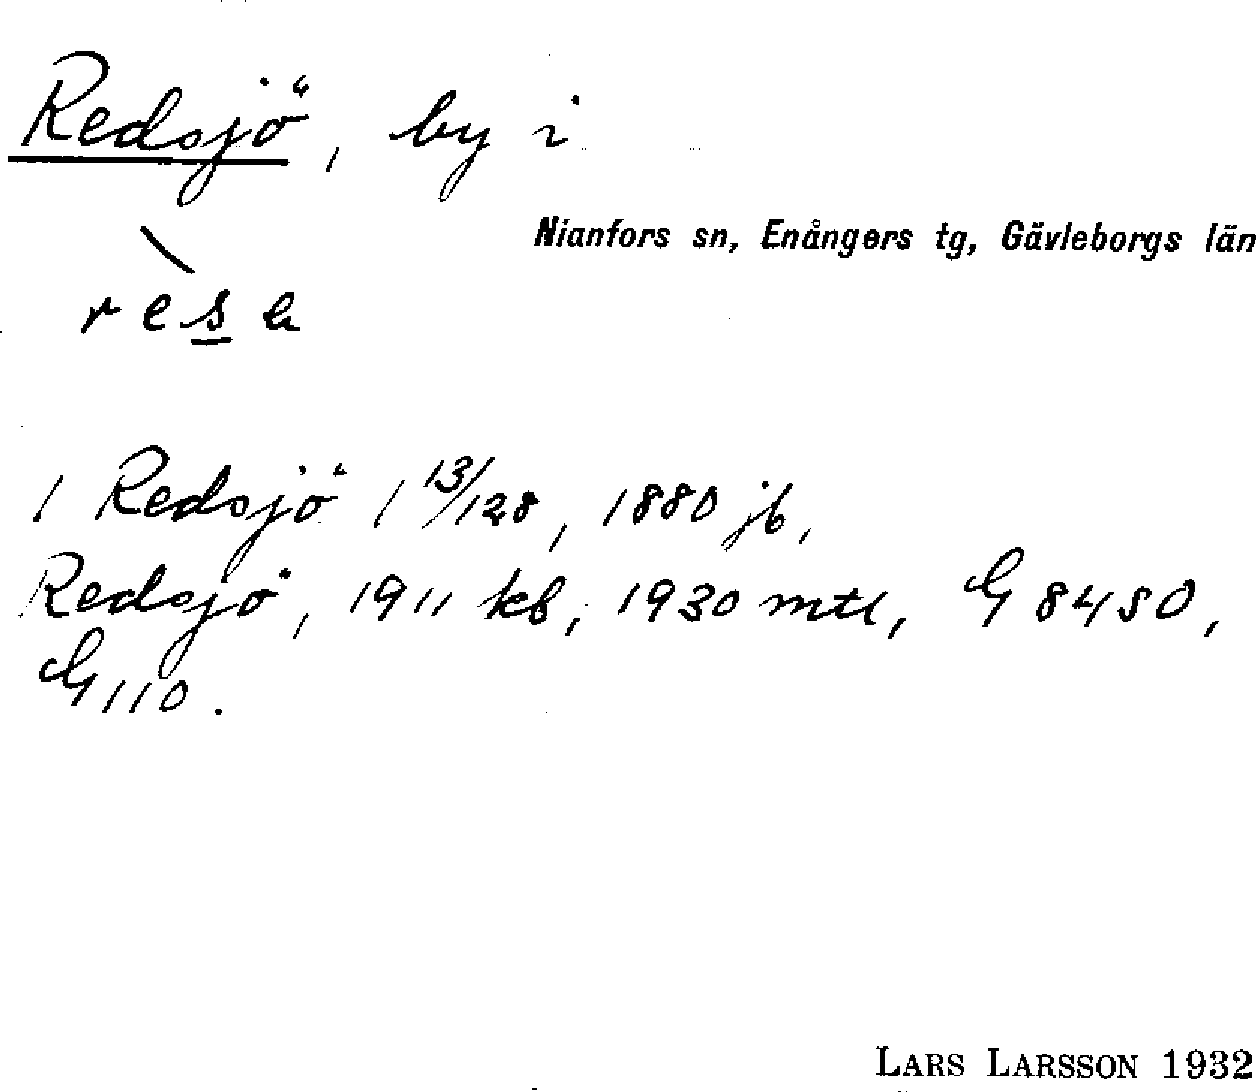 Redsjö, by i
Nianfors sn, Enångers tg, Gävleborgs län
\resa
1 Redsjö 1 13/128, 1880 jb,
Redsjö, 1911 kb, 1930 mtl, G 8450,
G 110.
LARS LARSSON 1932